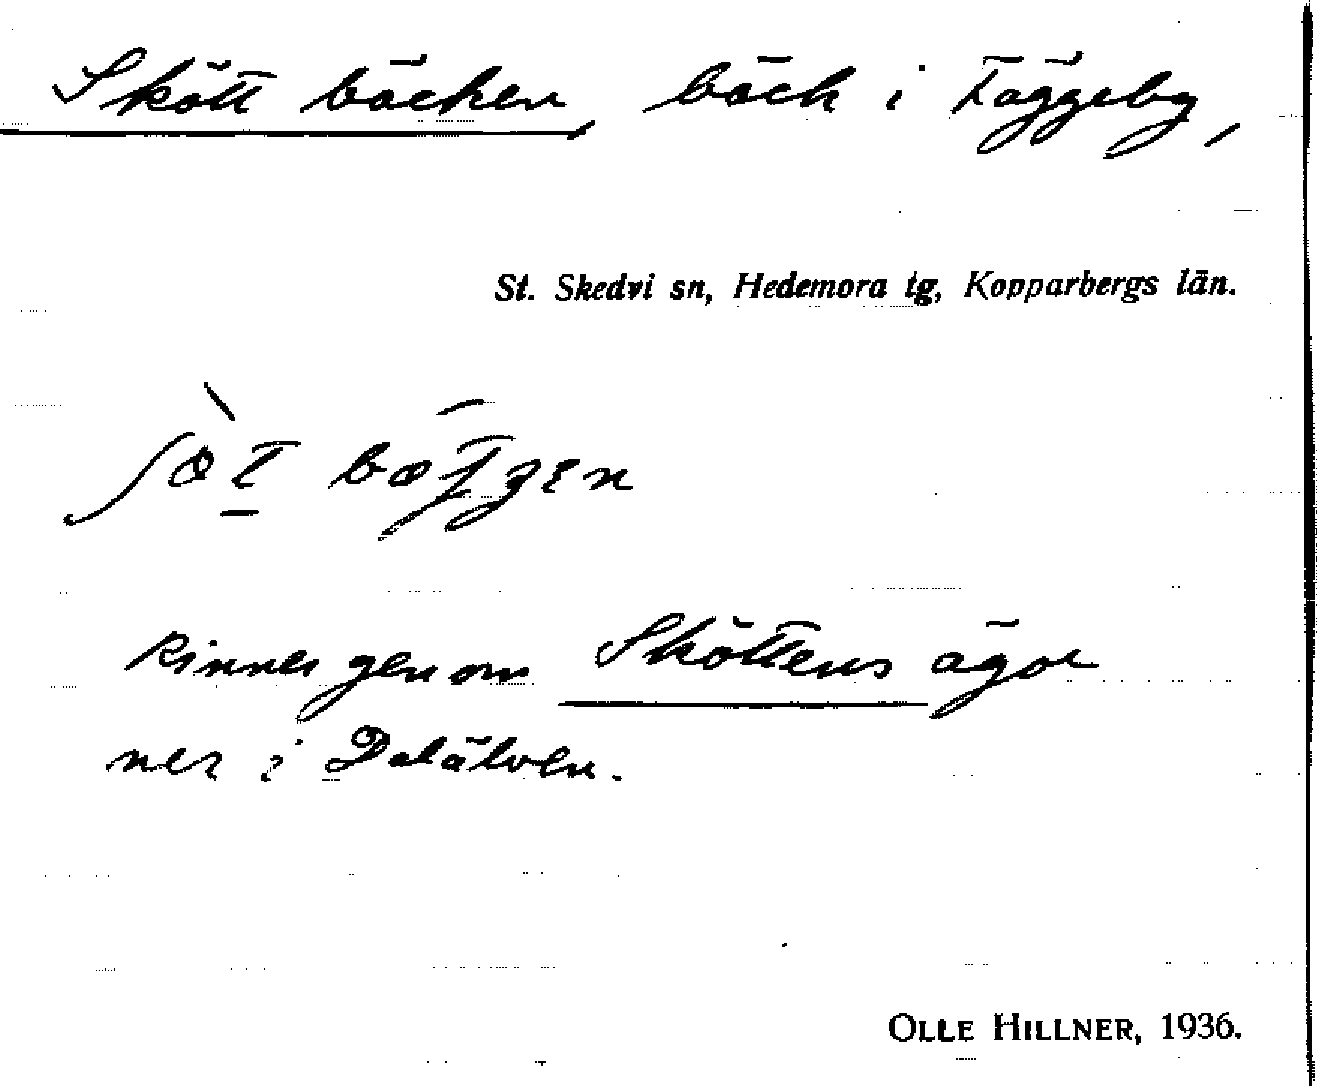 Skött bäcken, bäck i Täggeby,
St. Skedvi sn, Hedemora tg, Kopparbergs län.
Rinner genom Sköttens ägor
ner i Dalälven.
OLLE HILLNER, 1936.